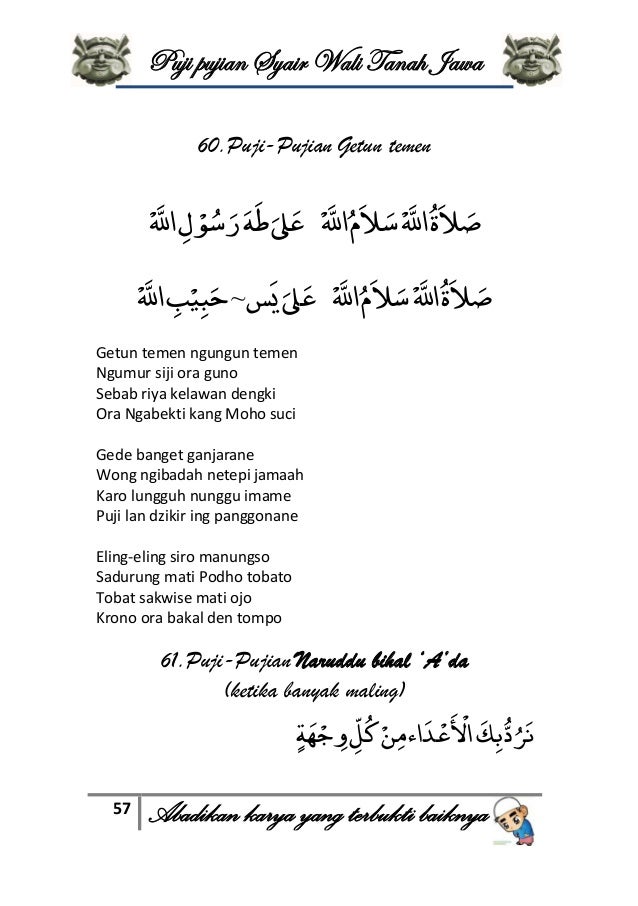 Puji pujian Syair Wali Tanah Jawa
60.Puji-Pujian Getun temen
صَلَاةُ اللهْ سَلَامُ اللهْ عَلَى طَهَ رَسُوْلِ اللهْ
صَلَاةُ اللهْ سَلَامُ اللهْ عَلَى يَس~حَبِيْبِ اللهْ
Getun temen ngungun temen
Ngumur siji ora guno
Sebab riya kelawan dengki
Ora Ngabekti kang Moho suci
Gede banget ganjarane
Wong ngibadah netepi jamaah
Karo lungguh nunggu imame
Puji lan dzikir ing panggonane
Eling-eling siro manungso
Sadurung mati Podho tobato
Tobat sakwise mati ojo
Krono ora bakal den tompo
61.Puji-Pujian Naruddu bihal 'A'da
(ketika banyak maling)
نَرُدُّبِكَ الْأَعْدَاء مِنْ كُلِّ وِجْهَةٍ
57 Abadikan karya yang terbukti baiknya